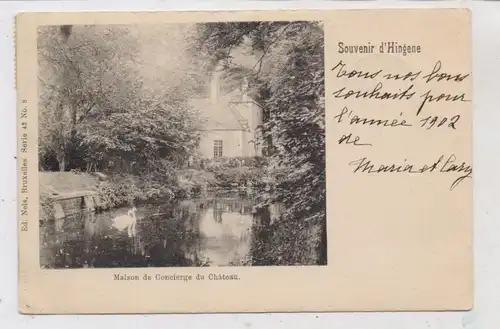 Souvenir d'Hingene
Tous nos bons
souhaits pour
l'année 1902
de
Maria et
Maison de Concierge du Château.
Ed. Nels, Bruxelles Série 42 No. 8